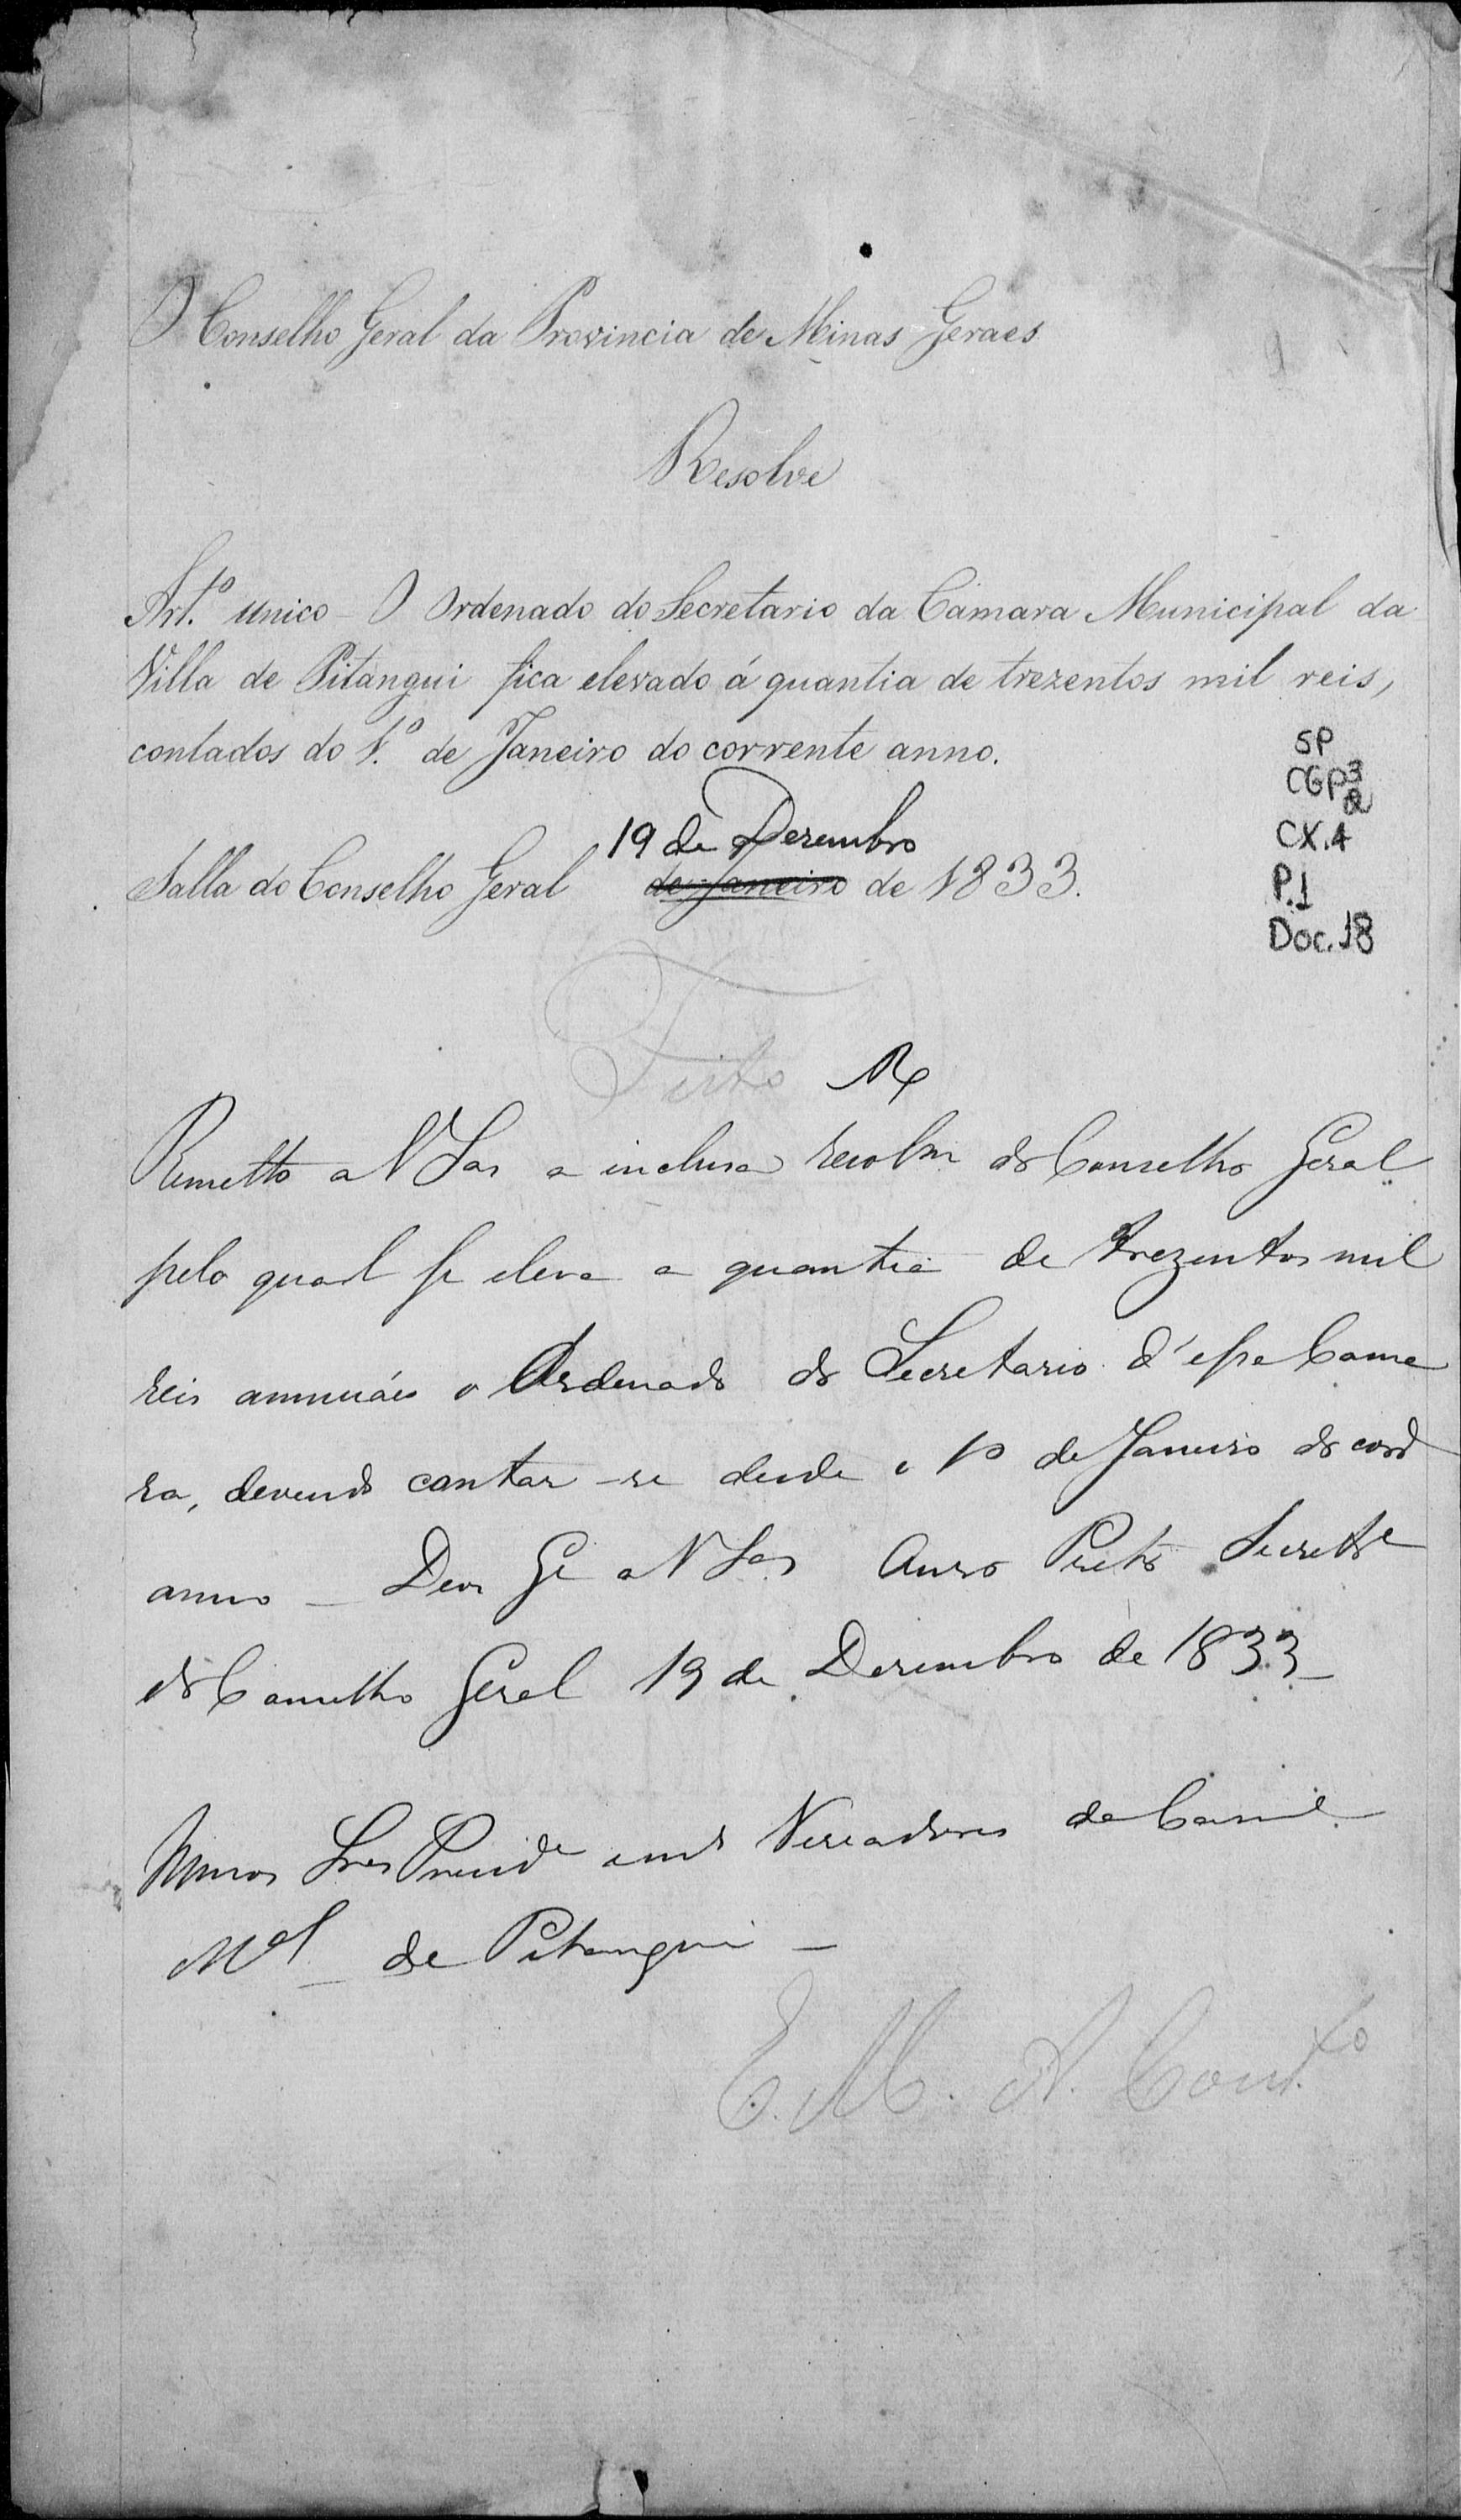 O Conselho Geral da Provincia de Minas Geraes
Resolve
Art.º unico - O Ordenado do Secretario da Camara Municipal da
Villa de Pitangui fica elevado á quantia de trezentos mil reis,
contados do 1.º de Janeiro do corrente anno.
SP
CGP3
CX.4
P.1
Doc.18
19 de Dezembro
Salla do Conselho Geral de Janeiro de 1833.
Remetto a V Sas a inclusa resolm do Conselho Geral
pelo qual se eleva a quantia de trezentos mil
reis annuáes o Ordenado do Secretario d'essa Cama
ra, devendo contar-se desde o 1º de Janeiro do corre
anno _ Deos Ge a V Sas Ouro Preto Secretre
do Conselho Geral 19 de Dezembro de 1833_
Srs Preside Vereadores da
Mal de Pitangui _
E. M. A.